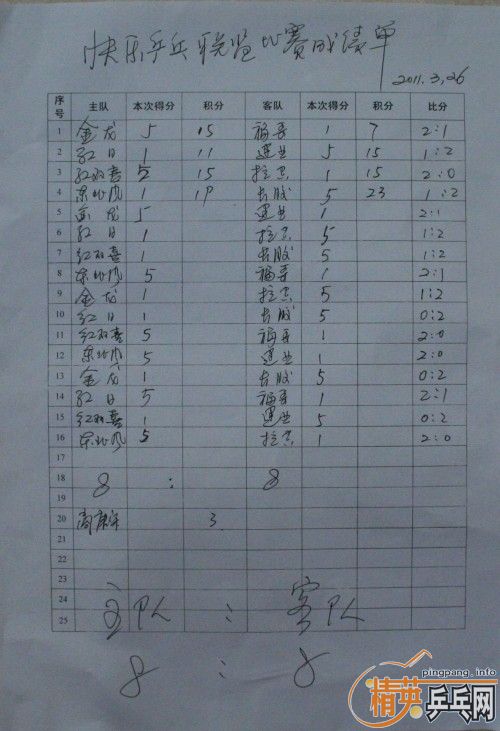 快乐乒乓联盟比赛成绩单
2011.3.26
序号 主队 本次得分 积分 客队 本次得分 积分 比分
1 金龙 5 15 福哥 1 7 2:1
2 红日 1 11 1:2
2 红日 1 11 5 15 1:2
3 红双喜 5 15 1 15 2:0
4 东北风 1 19 5 23 1:2
5 金龙 5 1 2:1
6 红日 1 5 1:2
7 红双喜 1 5 1:2
8 东北风 5 福哥 1 2:1
9 金龙 1 5 1:2
10 红日 1 5 0:2
11 红双喜 5 福哥 1 2:0
12 东北风 5 1 2:0
13 金龙 1 5 0:2
14 红日 5 福哥 1 2:1
15 红双喜 1 5 0:2
16 东北风 5 1 2:0
17
18 8 : 8
19
20 3
21
22
23
24
25
主队 : 客队
8 : 8
pingpang.info
精英乒乓网